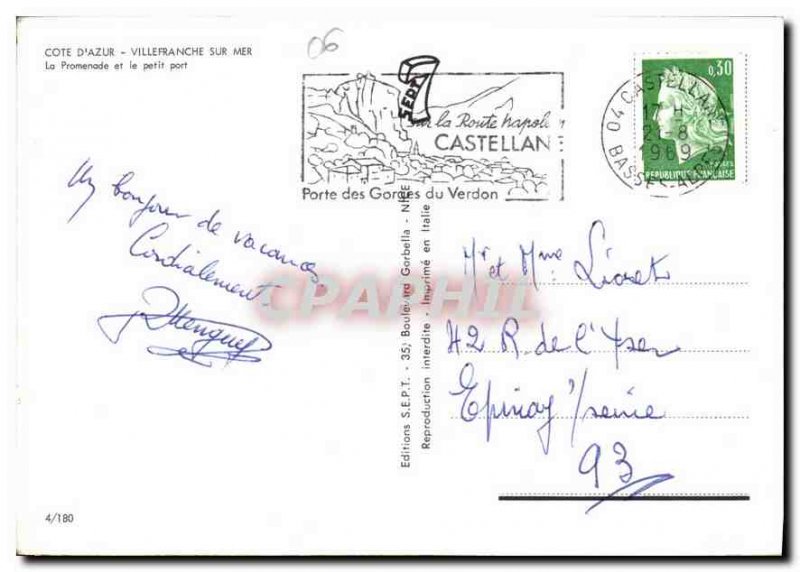 COTE D'AZUR - VILLEFRANCHE SUR MER
La Promenade et le petit port
06
SEPT
sur la Route Napoléon
CASTELLANE
Porte des Gorges du Verdon
04 CASTELLANE
17 H
2 -8
1969
BASSES-ALPES
0,30
REPUBLIQUE FRANÇAISE
Un bonjour de vacances
Cordialement
Editions S.E.P.T. - 35, Boulevard Gorbella - NICE
Reproduction interdite - Imprimé en Italie
CPAPHIL
Mr et Mme Lioret
42 R. de l'Yser
Epinay s/seine
93
4/180